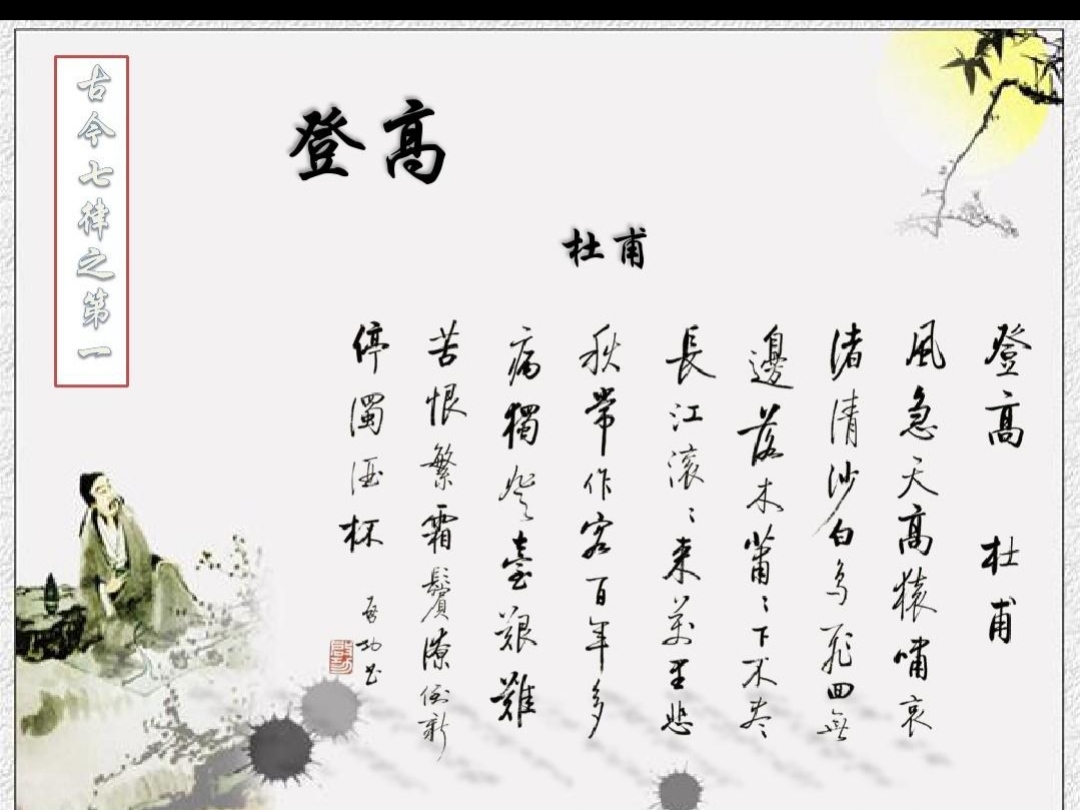 古今七律之第一
登高
杜甫
登高 杜甫
風急天高猿嘯哀
渚清沙白鸟飛回無
邊落木蕭〻下不尽
長江滚〻来萬里悲
秋常作客百年多
病獨登臺艱難
苦恨繁霜鬢潦倒新
停濁酒杯 啓功书